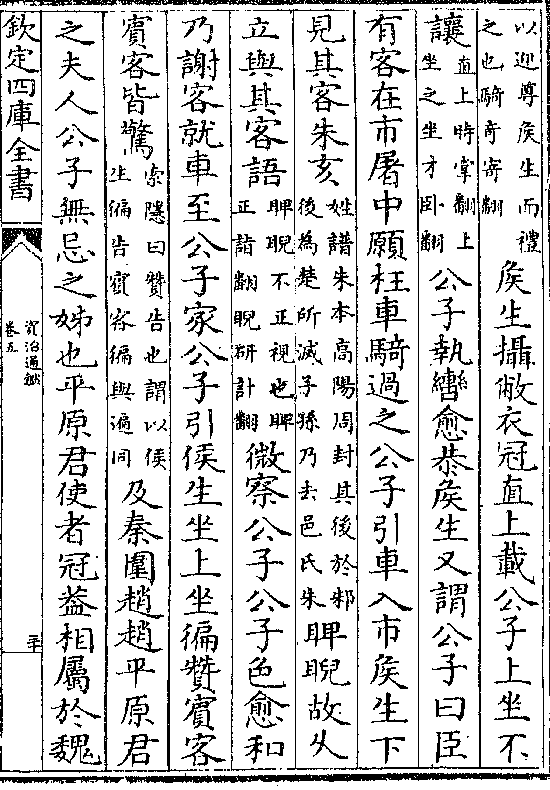 以迎尊侯生而禮
之也騎奇寄翻侯生攝敝衣冠直上載公子上坐不
讓直上時掌翻上
坐之坐才卧翻公子執轡愈恭侯生又謂公子曰臣
有客在市屠中願枉車騎過之公子引車入市侯生下
見其客朱亥姓譜朱本高陽周封其後於邾
後為楚所滅子孫乃去邑氏朱睥睨故久
立與其客語睥睨不正視也睥
正詣翻睨研計翻微察公子公子色愈和
乃謝客就車至公子家公子引侯生坐上坐徧贊賓客
賓客皆驚索隱曰贊告也謂以侯
生徧告賓客徧與遍同及秦圍趙趙平原君
之夫人公子無忌之姊也平原君使者冠蓋相屬於魏
欽定四庫全書
資治通鑑
卷五
二十